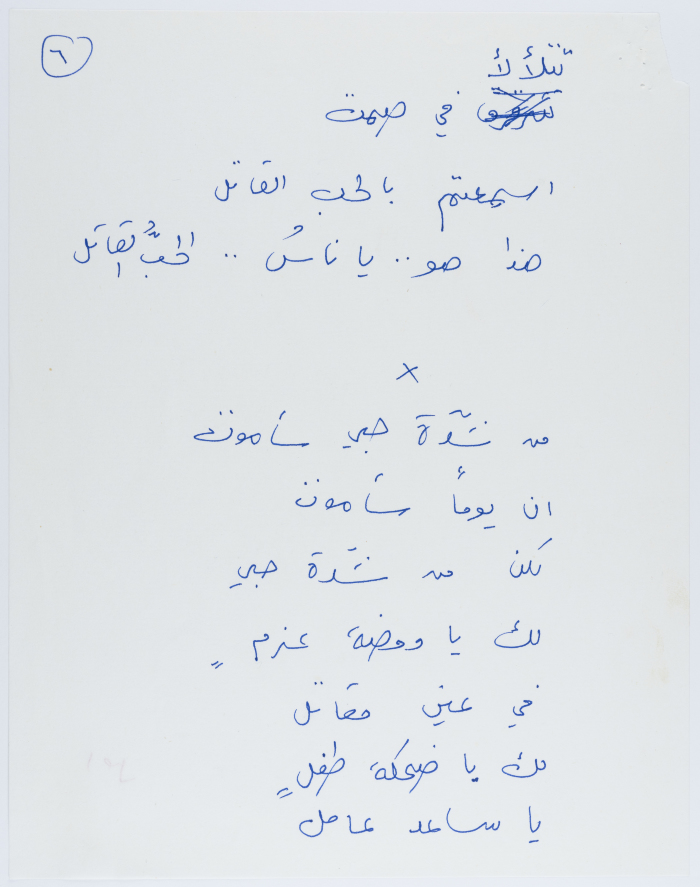 ٦
تتلألأ
في صمت
اسمعتم بالحب القاتل
هذا هو.. يا ناسُ .. الحبُّ القاتل
×
من شدّة حبي سأموت
ان يوماً سأموت
لكن من شدّة حبي
لك يا ومضة عزمٍ
في عين مقاتل
لك يا ضحكة طفلٍ
يا ساعد عامل